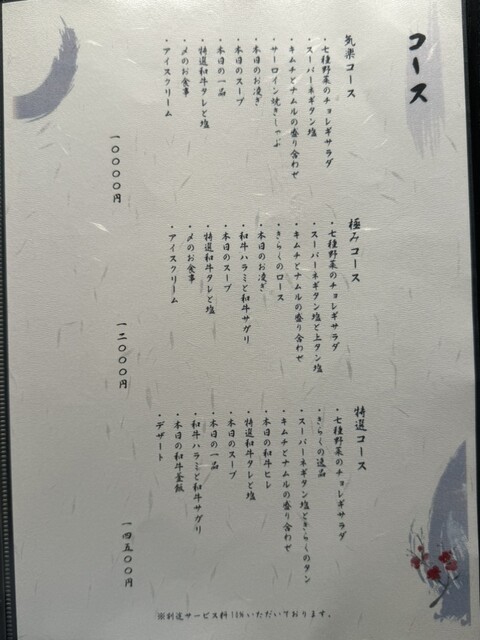 コース
気楽コース
・七種野菜のチョレギサラダ
・スーパーネギタン塩
・キムチとナムルの盛り合わせ
・サーロイン焼きしゃぶ
・本日のお凌ぎ
・本日のスープ
・本日の一品
・特選和牛タレと塩
・〆のお食事
・アイスクリーム
一〇〇〇〇円
極みコース
・七種野菜のチョレギサラダ
・スーパーネギタン塩と上タン塩
・キムチとナムルの盛り合わせ
・きらくのロース
・本日のお凌ぎ
・和牛ハラミと和牛サガリ
・本日のスープ
・特選和牛タレと塩
・〆のお食事
・アイスクリーム
一二〇〇〇円
特選コース
・七種野菜のチョレギサラダ
・きらくの逸品
・スーパーネギタン塩ときらくのタン
・キムチとナムルの盛り合わせ
・本日の和牛ヒレ
・特選和牛タレと塩
・本日のスープ
・本日の一品
・和牛ハラミと和牛サガリ
・本日の和牛釜飯
・デザート
一四五〇〇円
※別途サービス料10%いただいております。